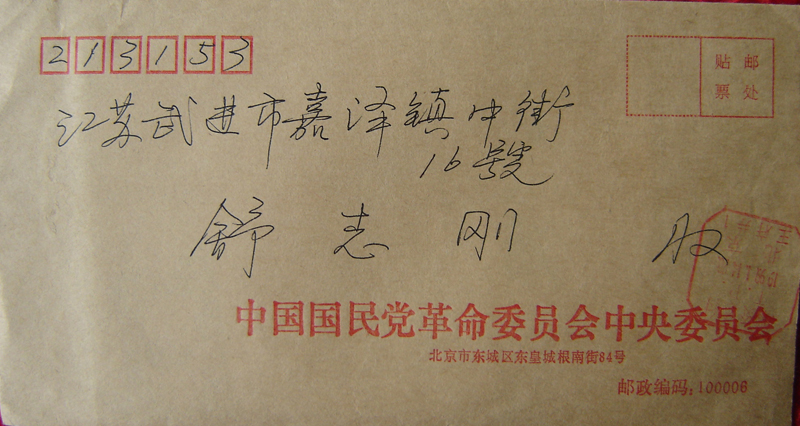 213153
贴邮
票处
江苏武进市嘉泽镇中街
16号
舒志刚 收
中国国民党革命委员会中央委员会
北京市东城区东皇城根南街84号
邮政编码：100006